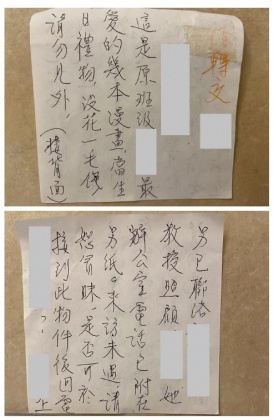 轉交
這是原班級最
愛的幾本漫畫,當生
日禮物,沒花一毛錢
請勿見外。(接背面)
另已聯絡
教授照顧 她
辦公室電話已附在
另紙。來訪未遇,請
恕冒昧。是否可於
接到此物件後回電
? 上